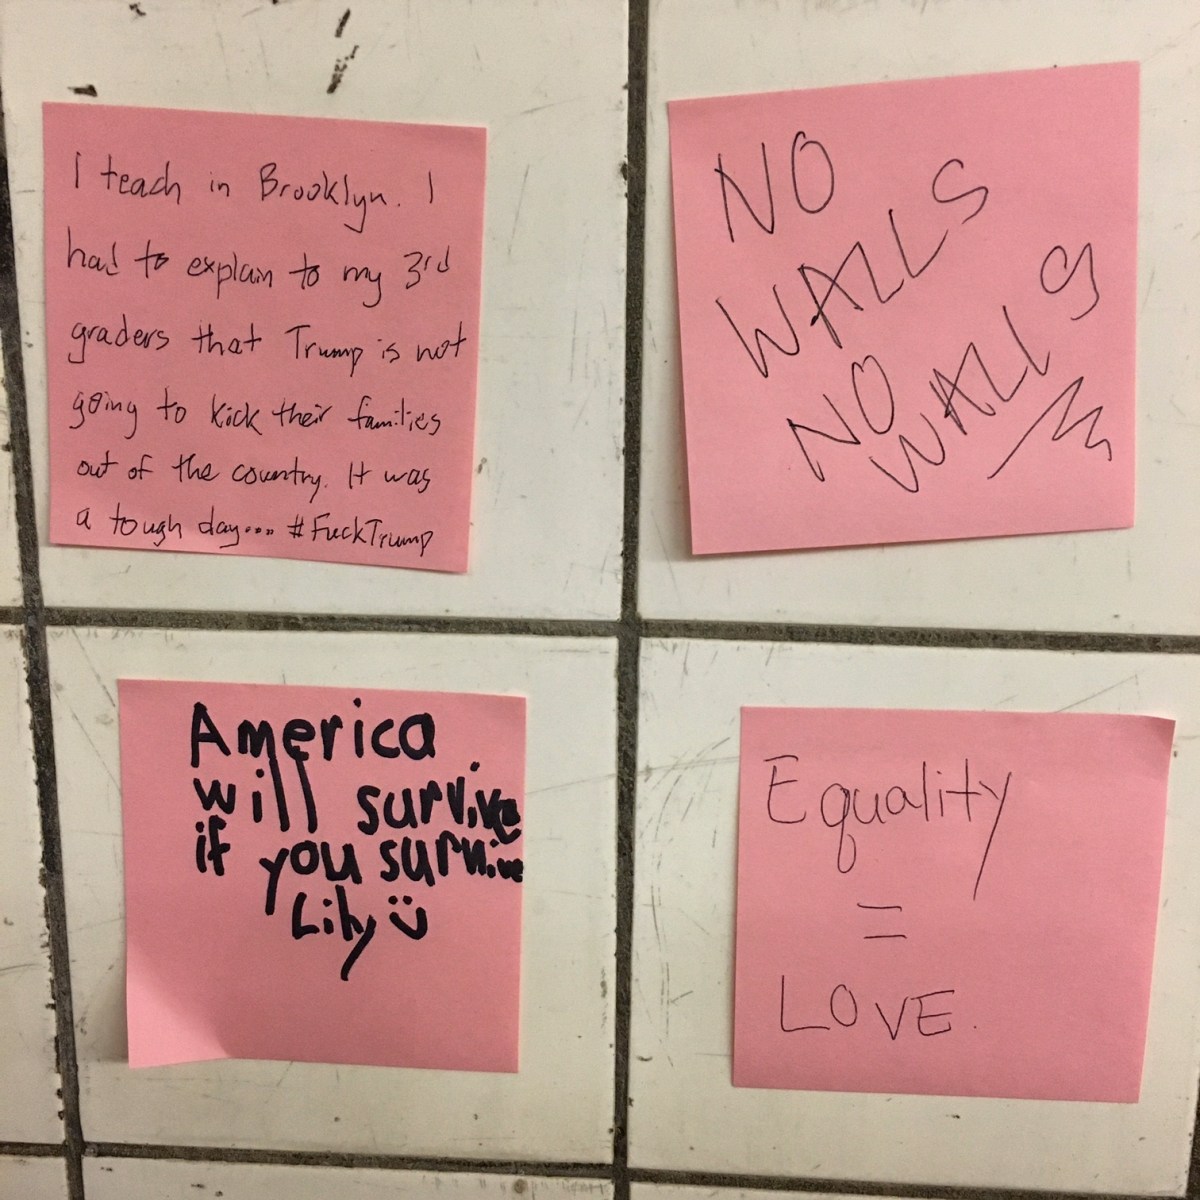 I teach in Brooklyn. I
had to explain to my 3rd
graders that Trump is not
going to kick their families
out of the country. It was
a tough day.... #FuckTrump
NO
WALLS
NO
WALLS
America
will survive
if you survive
Lily
Equality
=
LOVE.